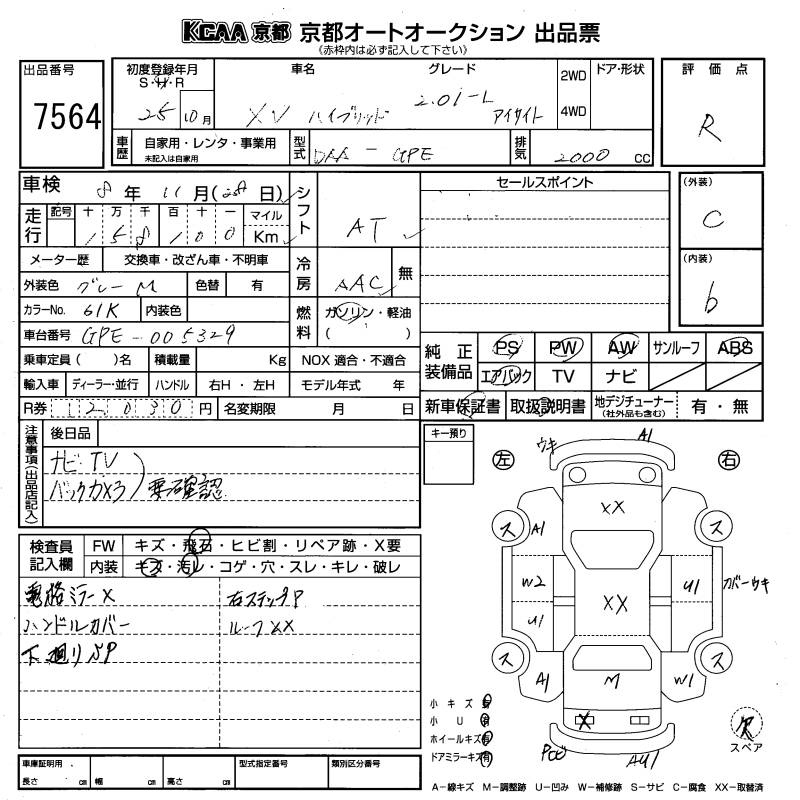 KCAA 京都 京都オートオークション 出品票
(赤枠内は必ず記入して下さい)
出品番号
7564
初度登録年月
S・H・R
25 10月
車名
XV ハイブリッド
グレード
2.0i-L
アイサイト
2WD
4WD
ドア・形状
評価点
R
車歴
自家用・レンタ・事業用
未記入は自家用
型式
DAA - GPE
排気
2000 cc
車検
8年 11月(28日)
シフト
AT
走行
記号 十 万 千 百 十 一
1 5 8 1 0 0
マイル
Km
メーター歴 交換車・改ざん車・不明車
冷房
AAC
無
外装色 グレーM 色替 有
カラーNo. 61K 内装色
燃料
ガソリン・軽油
( )
車台番号 GPE-005329
乗車定員( )名 積載量 Kg NOX 適合・不適合
輸入車 ディーラー・並行 ハンドル 右H・左H モデル年式 年
R券 12030円 名変期限 月 日
セールスポイント
(外装)
C
(内装)
b
純正装備品
PS PW AW サンルーフ ABS
エアバック TV ナビ
新車保証書 取扱説明書 地デジチューナー (社外品も含む) 有・無
注意事項(出品店記入)
後日品
ナビTV
バックカメラ) 要確認
キー預り
検査員記入欄
FW キズ・飛石・ヒビ割・リペア跡・X要
内装 キズ・汚レ・コゲ・穴・スレ・キレ・破レ
電格ミラーX
右ステップP
ハンドルカバー
ルーフXX
下廻りSP
左
右
ウキ A1
XX
ス A1 ス
W2 U1 カバーウキ
U1 XX
ス ス
A1 M W1
X
Pヒビ AU1
欠
スペア
小キズ 有
小U 有
ホイールキズ 有
ドアミラーキズ 有
A-線キズ M-調整跡 U-凹み W-補修跡 S-サビ C-腐食 XX-取替済
車庫証明用
長さ cm 幅 cm 高さ cm
型式指定番号
類別区分番号